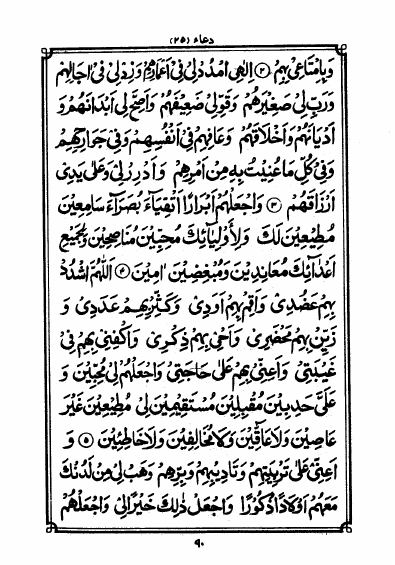 دعاء (٢٥)
وَبِإِمْتَاعِي بِهِمْ ② اِلٰهِي امْدُدْ لِي فِي اَعْمَارِهِمْ وَزِدْ لِي فِي اٰجَالِهِمْ
وَرَبِّ لِي صَغِيْرَهُمْ وَقَوِّ لِي ضَعِيْفَهُمْ وَاَصِحَّ لِي اَبْدَانَهُمْ وَ
اَدْيَانَهُمْ وَاَخْلَاقَهُمْ وَعَافِهِمْ فِي اَنْفُسِهِمْ وَفِي جَوَارِحِهِمْ
وَفِي كُلِّ مَا عُنِيْتُ بِهِ مِنْ اَمْرِهِمْ وَاَدْرِرْ لِي وَعَلٰى يَدِي
اَرْزَاقَهُمْ ③ وَاجْعَلْهُمْ اَبْرَارًا اَتْقِيَاءَ بُصَرَاءَ سَامِعِيْنَ
مُطِيْعِيْنَ لَكَ وَلِاَوْلِيَائِكَ مُحِبِّيْنَ مُنَاصِحِيْنَ وَلِجَمِيْعِ
اَعْدَائِكَ مُعَانِدِيْنَ وَمُبْغِضِيْنَ اٰمِيْنَ ④ اَللّٰهُمَّ اشْدُدْ
بِهِمْ عَضُدِي وَاَقِمْ بِهِمْ اَوَدِي وَكَثِّرْ بِهِمْ عَدَدِي وَ
زَيِّنْ بِهِمْ مَحْضَرِي وَاَحْيِ بِهِمْ ذِكْرِي وَاكْفِنِي بِهِمْ فِي
غَيْبَتِي وَاَعِنِّي بِهِمْ عَلٰى حَاجَتِي وَاجْعَلْهُمْ لِي مُحِبِّيْنَ وَ
عَلَيَّ حَدِبِيْنَ مُقْبِلِيْنَ مُسْتَقِيْمِيْنَ لِي مُطِيْعِيْنَ غَيْرَ
عَاصِيْنَ وَلَا عَاقِّيْنَ وَلَا مُخَالِفِيْنَ وَلَا خَاطِئِيْنَ ⑤ وَ
اَعِنِّي عَلٰى تَرْبِيَتِهِمْ وَتَادِيْبِهِمْ وَبِرِّهِمْ وَهَبْ لِي مِنْ لَدُنْكَ
مَعَهُمْ اَوْلَادًا ذُكُوْرًا وَاجْعَلْ ذٰلِكَ خَيْرًا لِي وَاجْعَلْهُمْ
٩٠